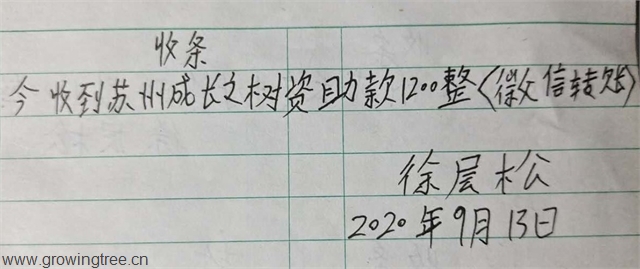 收条
今收到苏州成长之树资助款1200整(微信转账)
徐层松
2020年9月13日
www.growingtree.cn